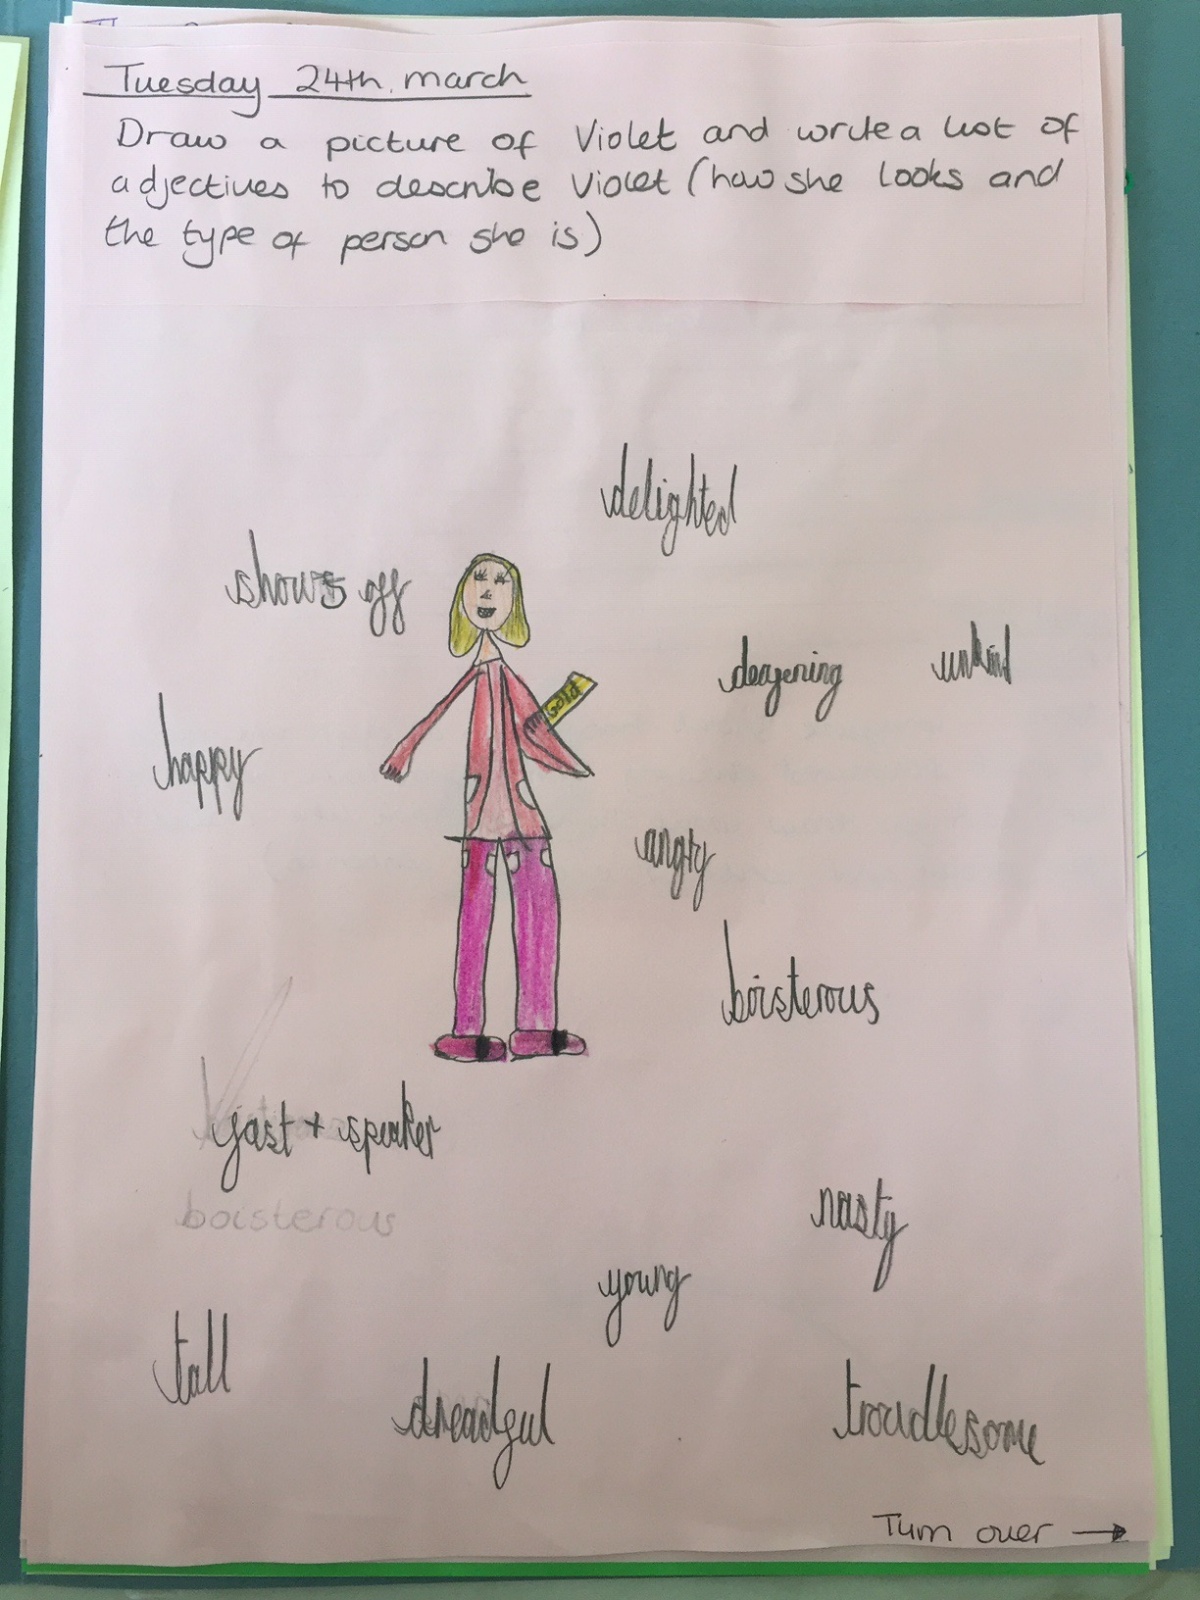 Tuesday 24th. march
Draw a picture of Violet and write a list of
adjectives to describe Violet (how she looks and
the type of person she is)
delighted
shows off
deafening
unkind
Gold
happy
angry
boisterous
fast + speaker
boisterous
nasty
young
tall
dreadful
troudlesome
Turn over →